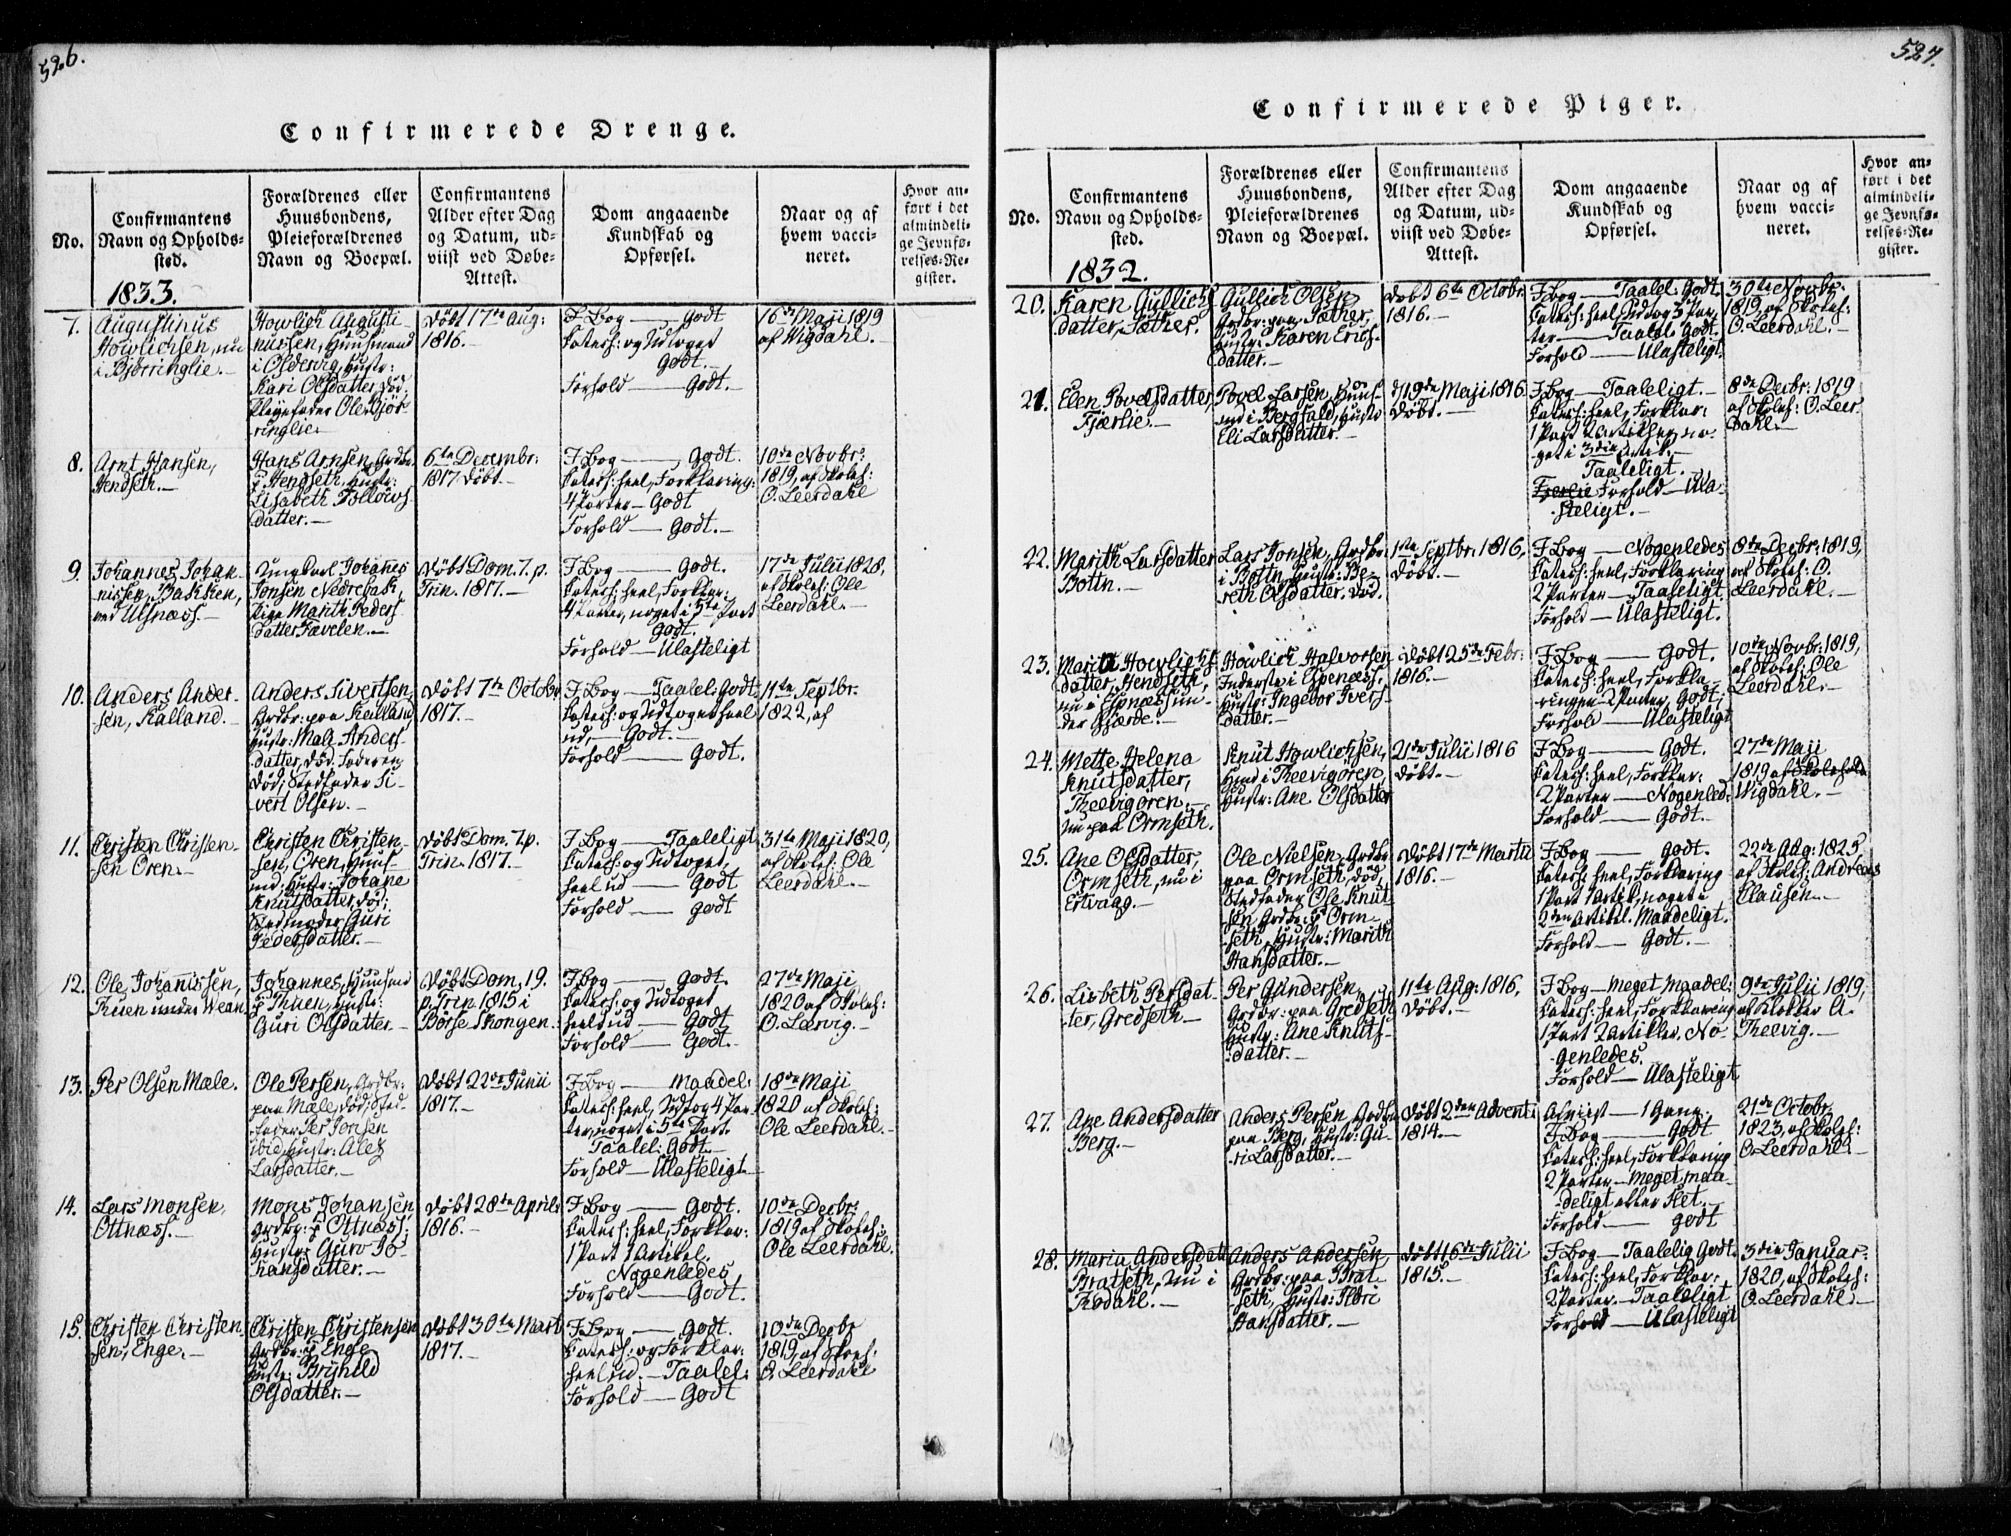 526.
Confirmerede Drenge.
No.
Confirmantens
Navn og Opholds-
sted.
Forældrenes eller
Huusbondens,
Pleieforældrenes
Navn og Boepæl.
Confirmantens
Alder efter Dag
og Datum, ud-
viist ved Døbe-
Attest.
Dom angaaende
Kundskab og
Opførsel.
Naar og af
hvem vacci-
neret.
Hvor an-
ført i det
almindeli-
ge Jevnfø-
relses-Re-
gister.
1833.
7.
Augustinus
Howlichsen, nu
i Bjørringlie.
Howlich Augusti
nussen, Huusmand
i Oldervig, Hustr:
Kari Olsdatter, død.
Pleyefader Ole Bjør-
ringlie.
Døbt 17de Aug:
1816.
I Bog — godt
Catech: og Udtoget
Godt.
Forhold — Godt.
16de Maji 1819
af Wigdahl.
8.
Arnt Hansen,
Hendseth.
Hans Arnsen, Grdbr.
p. Hendseth, Hustr:
Lisabeth Tollows
datter.
6te Decembr:
1817 døbt.
I Bog — Godt.
Catech: heel, Forklaring:
4 Parter — Godt
Forhold — Godt.
10de Novbr:
1819, af Skoleh:
O. Leerdahl
9.
Johannes Johan-
nissen, Bakken,
ved Ulsnæss.
Ungkarl Johanes
Jonsen Nedrebak,
Pige Marith Peders
datter Tævelen.
Døbt Dom. 7. p.
Trin. 1817.
I Bog — Godt.
Catech: heel, Forklar:
4 Parter, noget i 5te Part
Godt.
Forhold — Ulasteligt
17de Julii 1828,
af Skoleh: Ole
Leerdahl.
10.
Anders Ander-
sen, Kalland.
Anders Sivertsen,
Grdbr: paa Kalland
Hustr: Mali Anders
datter, død. Faderen
død, Stedfader Si-
vert Olsen.
Døbt 7de Octobr
1817.
I Bog — Taalel: Godt.
Catech: og Udtoget heel
ud, — Godt.
Forhold — Godt.
11te Septbr.
1822, af
11.
Christen Christen-
sen Øren.
Christen Christen-
sen, Øren, Huus-
md, Hustr: Johane
Knutsdatter, død:
Stedmoder Guri
Pedersdatter.
Døbt Dom. 7. p.
Trin. 1817.
I Bog — Taaleligt
Catech: og Udtoget,
heel ud — Godt
Forhold — godt
31te Maji 1820,
af Skoleh: Ole
Leerdahl.
12.
Ole Johanissen,
Thuen under Wean
Johannes, Huusmd
p. Thuen, Hustr:
Guri Olsdatter.
Døbt Dom, 19.
p. Trin. 1815 i
Børse Skongen.
I Bog — Godt.
Catech: og Udtoget
heelt ud — Godt
Forhold — Godt.
27de Maji
1820 af Skoleh:
O. Lervig.
13.
Per Olsen Mæle.
Ole Persen, Grdbr:
paa Mæle, død, Sted-
fader Per Jonsen
ibid, Hustr: Ales
Larsdatter.
Døbt 22de Junii
1817.
I Bog — Maadel:
Catech: heel, Udtog 4 Par-
ter, noget i 5te Part.
Taalel: Godt.
Forhold — Ulasteligt.
18de Maji
1820 af Skoleh:
Ole Leerdahl.
14.
Lars Monsen,
Ottnæss.
Mons Johansen
Grdbr: p Ottnæss:
Hustr: Guro Jo-
hansdatter.
Døbt 28de April
1816.
I Bog — Godt.
Catech: heel, Forklar:
1 Part 1 Artikel,
Nogenledes
Forhold — Godt.
10de Decbr:
1819 af Skoleh:
Ole Leerdahl.
15.
Christen Christen-
sen, Enge.
Christen Christensen
Grdbr: p Enge
Hustr: Brÿnild
Olsdatter.
Døbt 30te Marti
1817.
I Bog — Godt.
Catech: og Forklar:
heel ud. — Taalel:
Forhold — Godt
10de Decbr
1819, af Skoleh:
O. Leerdahl
527.
Confirmerede Piger.
No.
Confirmantens
Navn og Opholds-
sted.
Forældrenes eller
Huusbondens,
Pleieforældrenes
Navn og Boepæl.
Confirmantens
Alder efter Dag
og Datum, ud-
viist ved Døbe-
Attest.
Dom angaaende
Kundskab og
Opførsel.
Naar og af
hvem vacci-
neret.
Hvor an-
ført i det
almindeli-
ge Jevnfø-
relses-Re-
gister.
1832.
20.
Karen Gullichs
datter, Sæther.
Gullich Olsen
Grdbr: paa Sæther,
Hustr: Karen Erics-
datter.
Døbt 6te Octobr.
1816.
I Bog — Taalel: Godt.
Catech: heel, Udtog 3 Par-
ter — Taalel: Godt.
Forhold — Ulasteligt.
30te Novbr:
1819, af Skoleh:
O. Leerdahl.
21.
Elen Povelsdatter,
Fjærlie.
Povel Larsen, Huus-
md i Bergfald, Hustr
Eli Larsdatter.
d 19de Maji 1816
døbt.
I Bog — Taaleligt.
Catech: heel, Forklar:
1 Part 2 Artikler, no-
get i 3die Artik:
Taaleligt.
Forhold — Ula-
steligt.
8de Decbr: 1819
af Skoleh: O. Leer
dahl.
22.
Marith Larsdatter
Botn.
Lars Jonsen, Grdbr.
i Botn, Hustr: Be-
reth Olsdatter, død.
1ste Septbr: 1816,
døbt.
I Bog — Nogenledes
Catech: heel, Forklaring
2 Parter — Taaleligt.
Forhold — Ulasteligt.
8de Decbr: 1819,
af Skoleh: O.
Leerdahl.
23.
Marith Howlichs
datter, Hendseth,
nu i Espnæss un-
der Gjærde.
Howlich Halvorsen
Inderste i Espenæss:
Hustr: Ingebor Ivers-
datter.
Døbt 25de Febr:
1816.
I Bog — Godt.
Catech: heel, Forkla-
ringen 2 Parter, Godt,
Forhold — Ulasteligt
10de Novbr: 1819,
af Skoleh: Ole
Leerdahl.
24.
Mette Helena
Knutsdatter,
Theevigøren,
nu paa Ormseth.
Knut Howlichsen,
Hmd i Theevigøren,
Hustr: Ane Olsdatter
21de Julii 1816
døbt.
I Bog — Godt.
Catech: heel, Forklar:
2 Parter — Nogenled:
Forhold — Godt.
27de Maji
1819 af
Wigdahl.
25.
Ane Olsdatter,
Ormseth, nu i
Ertvaag.
Ole Nielsen, Grdbr
paa Ormseth, død,
Stedfader Ole Knut
sen, Grdbr: p Orm-
seth, Hustr: Marith
Hansdatter.
Døbt 17de Martii
1816.
I Bog — godt.
Catech: heel, Forklaring
1 Part 1 Artik, noget i
2den Artikel. Maadeligt.
Forhold — Godt.
22de Aug: 1825
af Skoleh: Andreas
Clausen.
26.
Lisbeth Persdat-
ter, Gredseth
Per Gundersen,
Grdbr: paa Gredseth
Hustr: Ane Knuts-
datter.
11te Aug: 1816,
døbt.
I Bog — Meget Maadel:
Catech: heel, Forklaring
1 Part 2 Artikler, No-
genledes
Forhold — Ulasteligt
9de Julii 1819,
af Klokker A.
Theevig.
27.
Ane Andersdatter
Berg.
Anders Persen Grdbr
paa Berg, Hustr: Gu-
ri Larsdatter.
Døbt 2den Advent:
1814.
Afviist — 1 Gang.
I Bog — Godt
Catech: heel, Forklaring
2 Parter — Meget maa-
deligt eller slet.
Forhold — godt
21de Octobr
1823, af Skoleh:
O. Leerdahl.
28.
Maria Andersdatt
Bratseth, nu i
Thodahl.
Anders Andersen,
Grdbr: paa Brat-
seth, Hustr: Ildri
Hansdatter.
Døbt 16de Julii
1815.
I Bog — Taalelig Godt.
Catech: heel, Forklar:
2 Parter. — Taaleligt
Forhold — Ulasteligt
3die Januar:
1820, af Skoleh:
O. Leerdahl.